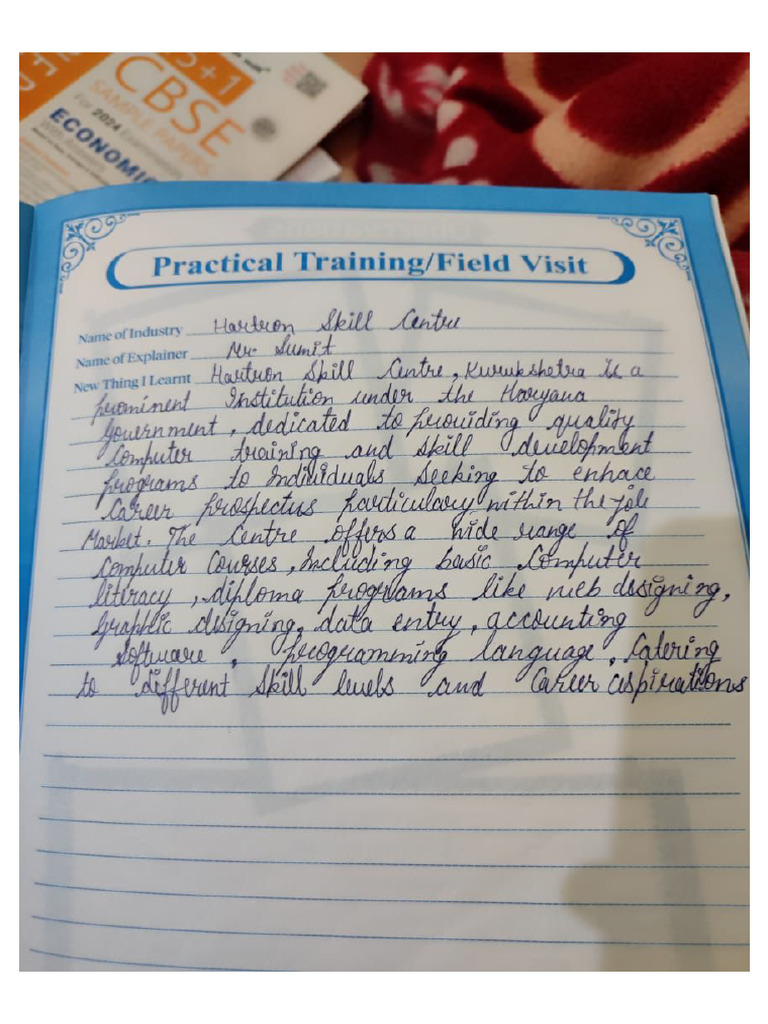 5+1
CBSE
SAMPLE PAPERS
For 2024 Examination
ECONOMI
Practical Training/Field Visit
Name of Industry Hartron Skill Centre
Name of Explainer Mr. Sumit
New Thing I Learnt Hartron Skill Centre, Kurukshetra is a
prominent Institution under the Haryana
Government, dedicated to providing quality
Computer training and skill development
programs to Individuals seeking to enhace
Career prospectus particulary within the job
Market. The Centre offers a wide range of
Computer Courses, Including basic Computer
literacy, diploma programs like web designing,
Graphic designing, data entry, accounting
Software, programming language, Catering
to different skill levels and Career aspirations